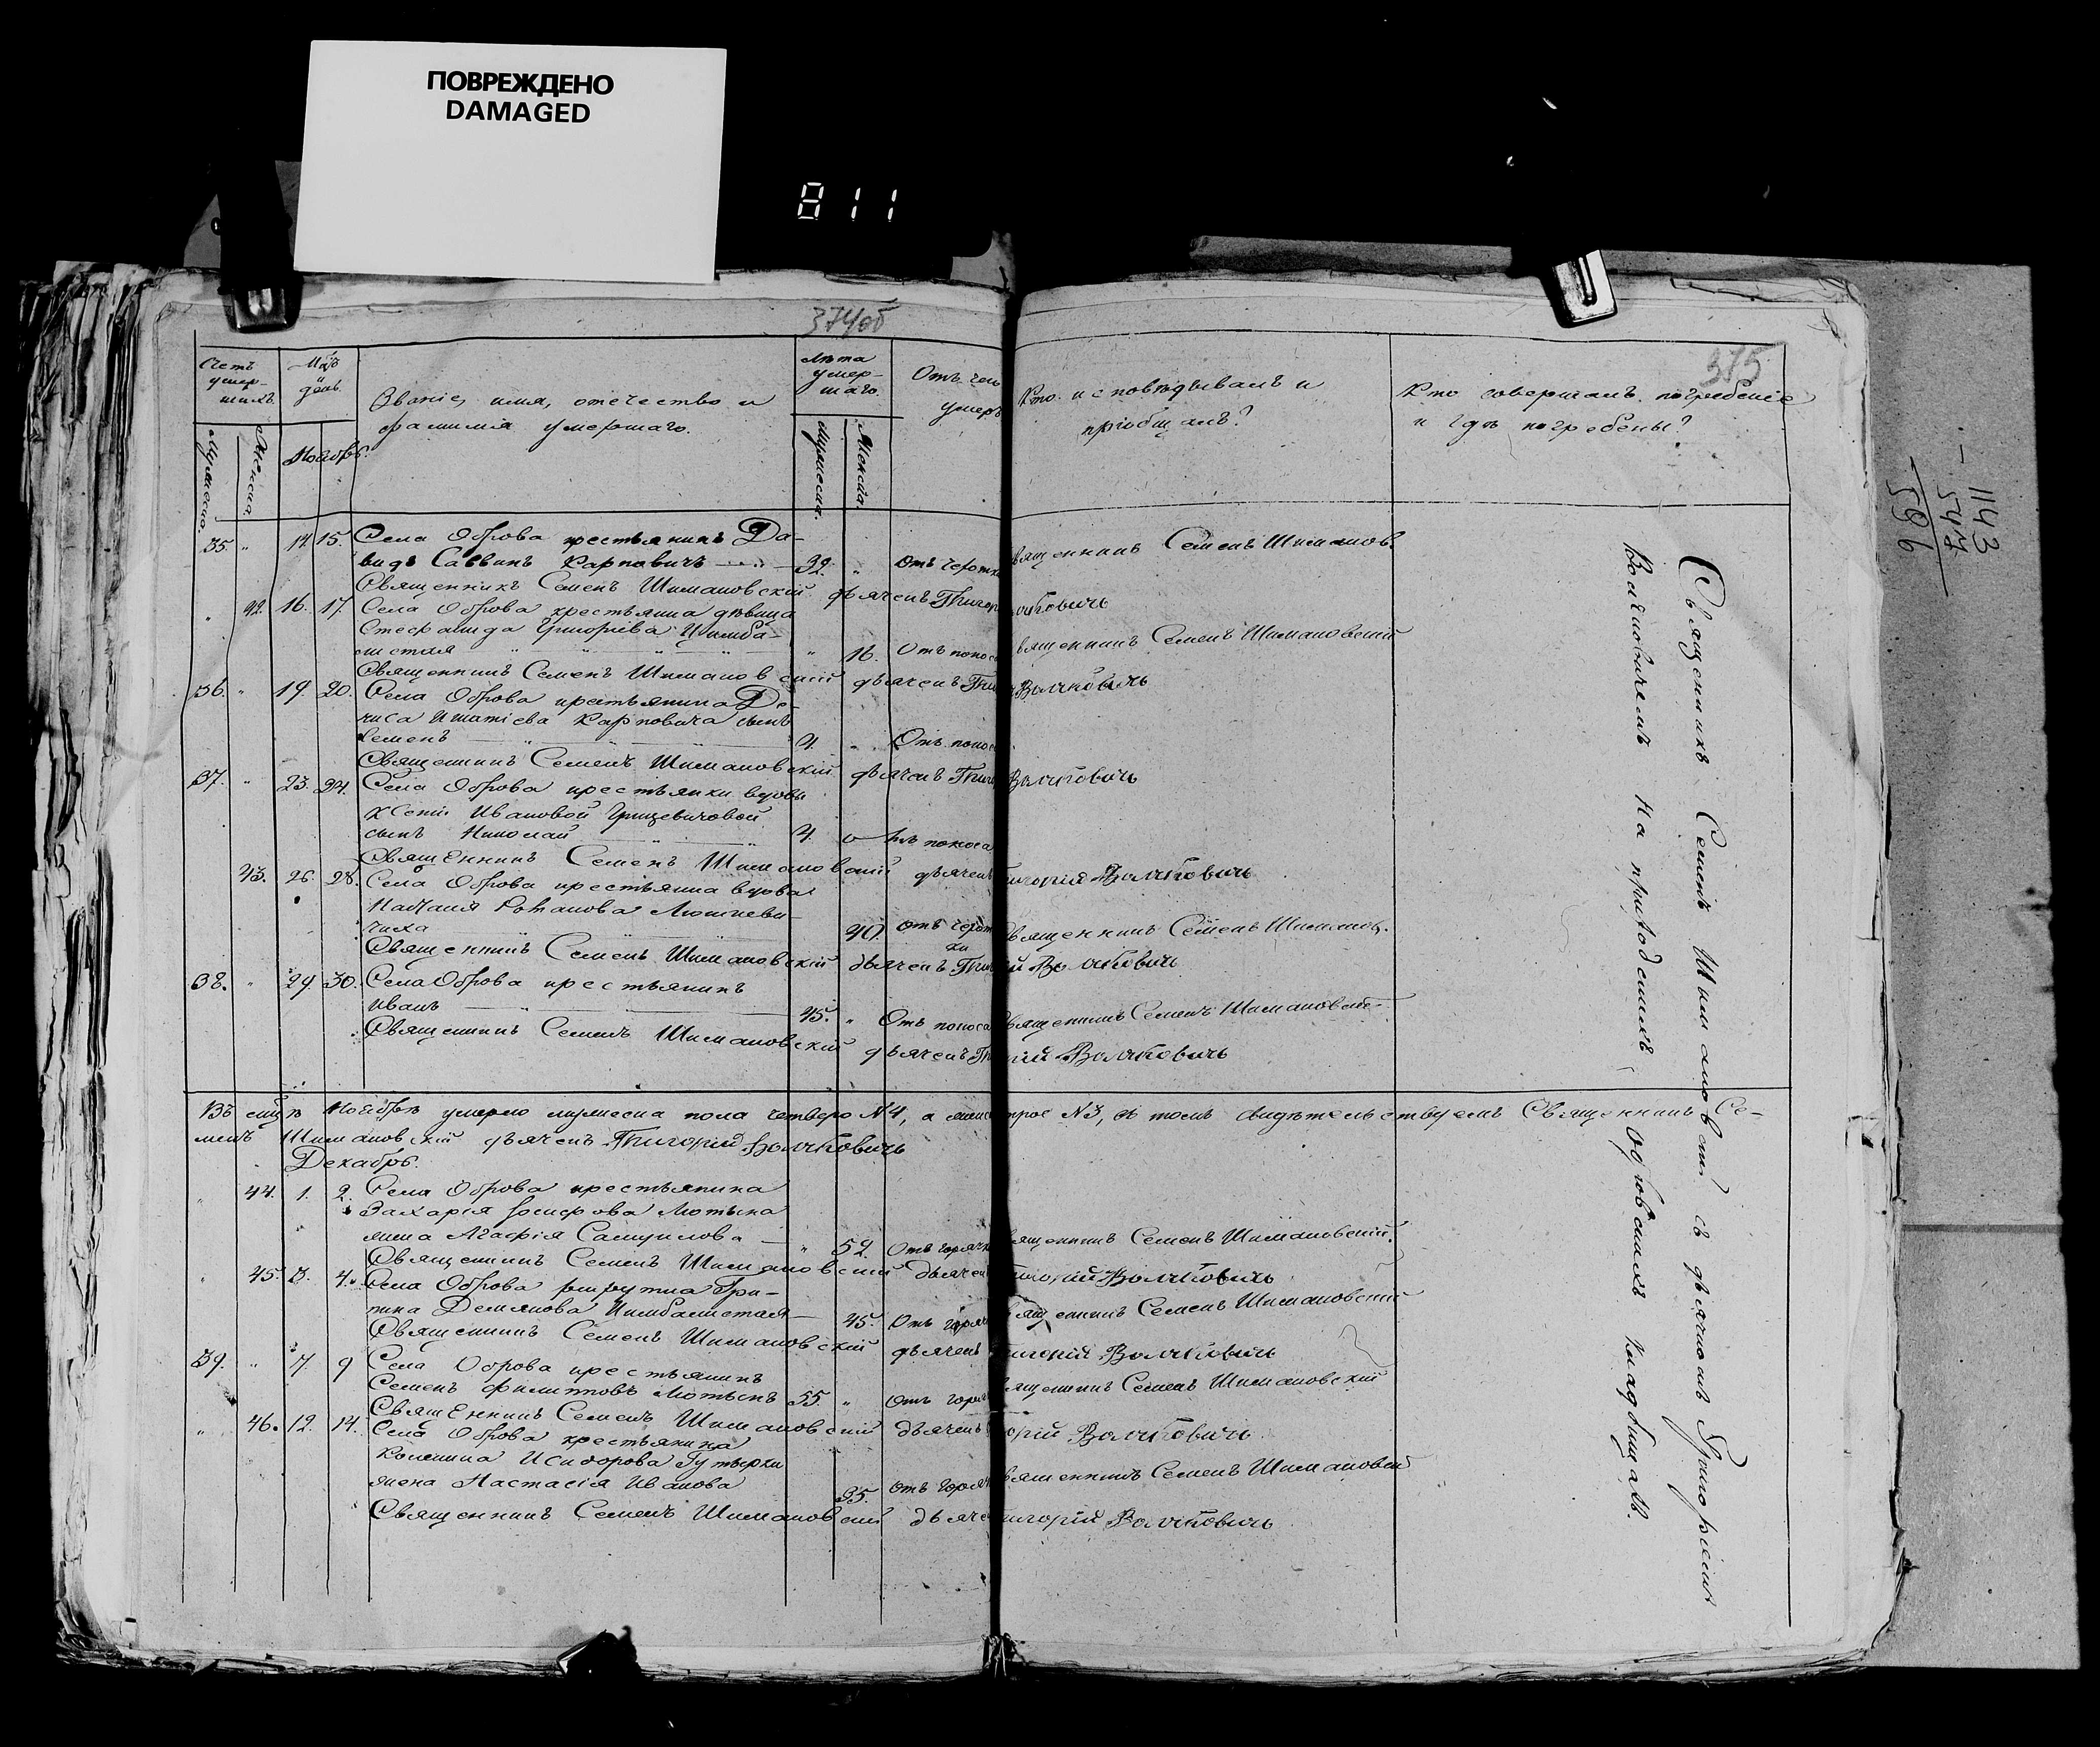 ПОВРЕЖДЕНО
DAMAGED
811
374об
375
Счетъ умер-шихъ
Мц͏ъ и день
Званіе, имя, отечество и фамилія умершаго.
Лѣта умер-шаго.
Отъ чего умеръ
Кто исповѣдывалъ и пріобщалъ?
Кто совершалъ погребеніе и гдѣ погребены?
Мужеска. Женска. Ноябрь. Мужеска. Женска.
35. " 14. 15. Села Оброва крестьянинъ Да-
видъ Саввинъ Карповичъ 32. " Отъ чахотки Священникъ Семенъ Шимановс.
Священникъ Семенъ Шимановскій дьячекъ Григорій Волчковичь
" 42. 16. 17. Села Оброва крестьянка дѣвица
Стефанида Григоріева Цимба-
листая " 16. Отъ поноса Священникъ Семенъ Шимановскій
Священникъ Семенъ Шимановскій дьячекъ Григорій Волчковичь
36. " 19. 20. Села Оброва крестьянина Де-
ниса Игнатіева Карповича сынъ
Семенъ 4. " Отъ поноса
Священникъ Семенъ Шимановскій дьячекъ Григорій Волчковичь
37. " 23. 24. Села Оброва крестьянки вдовы
Ксеніи Ивановой Грицевичовой
сынъ Николай 4. Отъ поноса
Священникъ Семенъ Шимановскій дьячекъ Григорій Волчковичь
43. 26. 28. Села Оброва крестьянка вдова
Наталія Романова
40. Отъ Священникъ Семенъ Шиманов.
Священникъ Семенъ Шимановскій дьячекъ Григорій Волчковичь
38. " 29. 30. Села Оброва крестьянинъ
Иванъ 45. " Отъ поноса Священникъ Семенъ Шимановскій
Священникъ Семенъ Шимановскій дьячекъ Григорій Волчковичь
Въ сицѣ Ноябрѣ умерло мужеска пола четверо N4, а женска трое N3, въ томъ свидѣтельствуемъ Священникъ Се-
менъ Шимановскій дьячекъ Григорій Волчковичь
Декабрь.
" 44. 1. 2. Села Оброва крестьянина
Захарія Іосифова Мотыка
жена Агафія Самуилова " 52. Отъ горячки Священникъ Семенъ Шимановскій.
Священникъ Семенъ Шимановскій дьячекъ Григорій Волчковичь
" 45. 3. 4. Села Оброва рекрутка Гри-
пина Демянова Цимбалистая 45. Отъ горячки Священникъ Семенъ Шимановскій
Священникъ Семенъ Шимановскій дьячекъ Григорій Волчковичь
39. " 7. 9 Села Оброва крестьянинъ
Семенъ Филиповъ Мотыкъ 55 " Отъ горячки Священникъ Семенъ Шимановскій
Священникъ Семенъ Шимановскій дьячекъ Григорій Волчковичь
" 46. 12. 14. Села Оброва крестьянина
Исидорова
жена Настасія Иванова 35. Отъ горячки Священникъ Семенъ Шимановскій
Священникъ Семенъ Шимановскій дьячекъ Григорій Волчковичь
Священникъ Семенъ Шимановскій съ дьячкомъ Григоріемъ
Волчковичемъ на приходскихъ Обровскихъ кладбищахъ.
— 1143
547
596